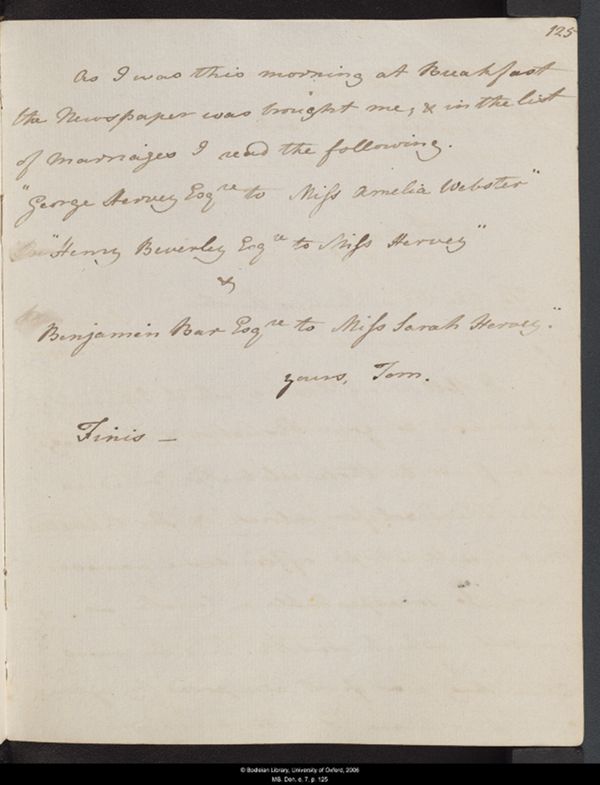 125
As I was this morning at Breakfast
the Newspaper was brought me, & in the list
of Marriages I read the following.
"George Hervey Esqre to Miss Amelia Webster"
"Henry Beverley Esqre to Miss Hervey"
&
Benjamin Bar Esqre to Miss Sarah Hervey".
yours, Tom.
Finis —
© Bodleian Library, University of Oxford, 2006
MS. Don. e. 7, p. 125